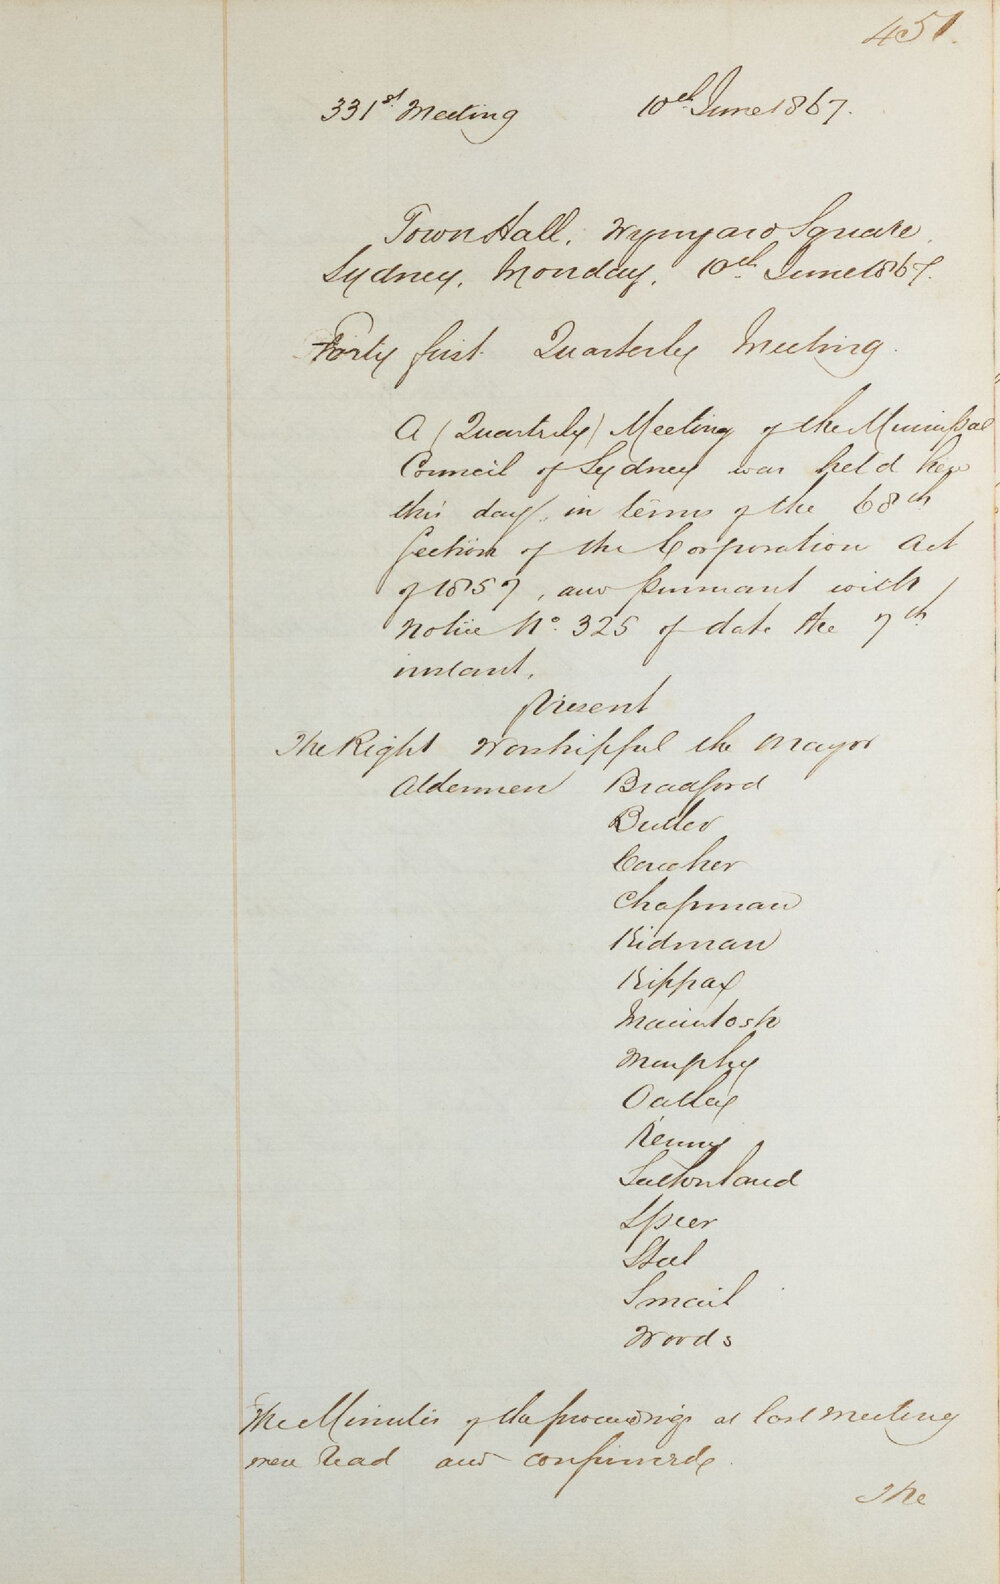 451.
331st Meeting 10th June 1867.
Town Hall, Wynyard Square,
Sydney, Monday, 10th June 1867.
Forty first Quarterly Meeting.
A (Quarterly) Meeting of the Municipal
Council of Sydney was held here
this day, in terms of the 68th
Section of the Corporation Act
of 1857, and pursuant with
Notice No. 325 of date the 7th
instant.
Present
The Right Worshipful the Mayor
Aldermen Bradford
Butler
Caraher
Chapman
Kidman
Kippax
Macintosh
Murphy
Oatley
Renny
Sutherland
Speer
Steel
Smail
Woods
The Minutes of the proceedings at last meeting
were read and confirmed.
The